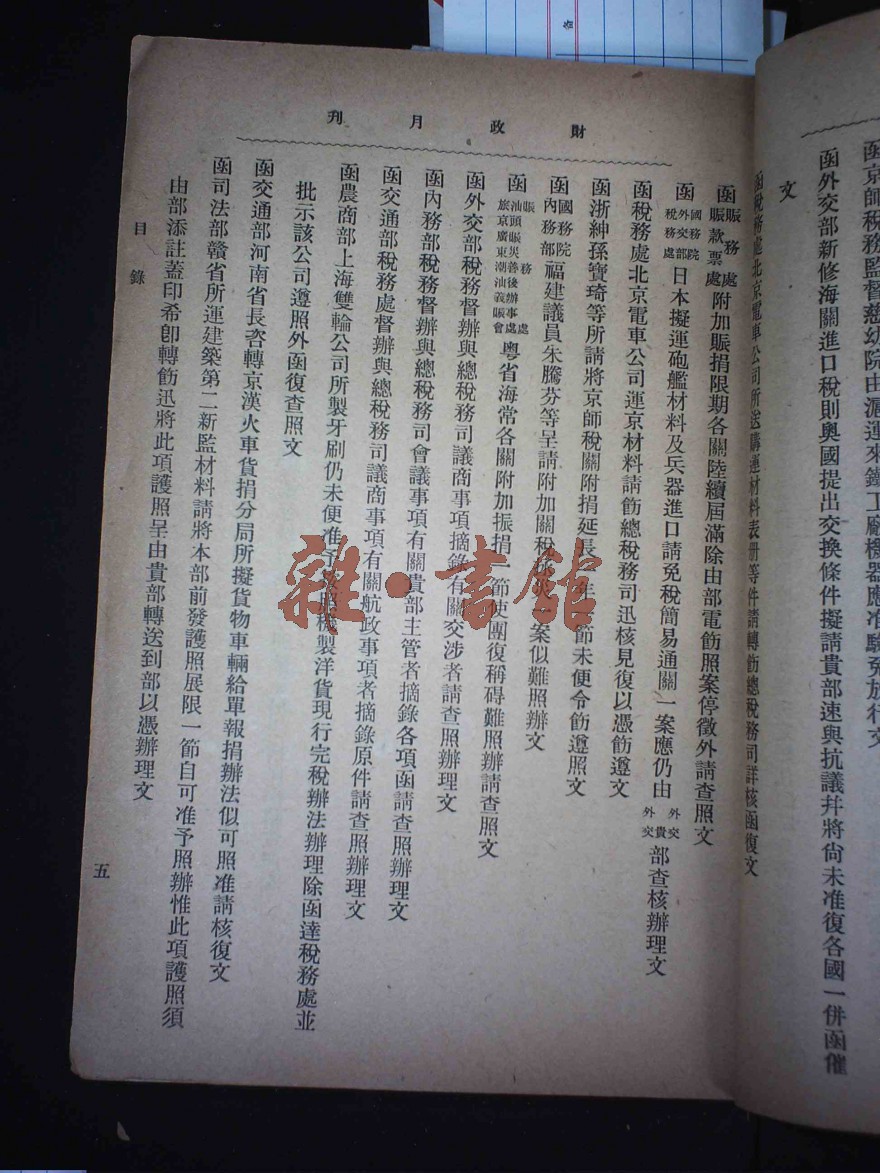 函京師稅務監督慈幼院由滬運來鐵工廠機器應准驗免放行文
函外交部新修海關進口稅則奧國提出交換條件擬請貴部速與抗議幷將尙未准復各國一倂函催
文
函稅務處北京電車公司所送購運材料表册等件請轉飭總稅務司詳核函復文
財政月刊
函賑務處賑款票處附加賑捐限期各關陸續屆滿除由部電飭照案停徵外請查照文
函國務院外交部稅務處日本擬運砲艦材料及兵器進口請免稅簡易通關一案應仍由外交外交貴部查核辦理文
函稅務處北京電車公司運京材料請飭總稅務司迅核見復以憑飭遵文
函浙紳孫寶琦等所請將京師稅關附捐延長一年一節未便令飭遵照文
函國務院內務部福建議員朱騰芬等呈請附加關稅一案似難照辦文
函賑務處汕頭賑災善後辦事處旅京廣東潮汕義賑會粵省海常各關附加振捐一節使團復稱碍難照辦請查照文
函外交部稅務督辦與總稅務司議商事項摘錄有關交涉者請查照辦理文
函內務部稅務督辦與總稅務司會議事項有關貴部主管者摘錄各項函請查照辦理文
函交通部稅務處督辦與總稅務司議商事項有關航政事項者摘錄原件請查照辦理文
函農商部上海雙輪公司所製牙刷仍未便准予按照機製洋貨現行完稅辦法辦理除函達稅務處並
批示該公司遵照外函復查照文
函交通部河南省長咨轉京漢火車貨捐分局所擬貨物車輛給單報捐辦法似可照准請核復文
函司法部贛省所運建築第二新監材料請將本部前發護照展限一節自可准予照辦惟此項護照須
由部添註蓋印希卽轉飭迅將此項護照呈由貴部轉送到部以憑辦理文
目錄
五
雜·書館